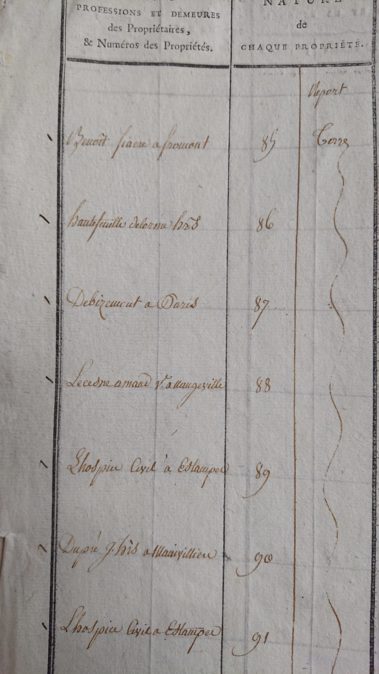 PROFESSIONS ET DEMEURES
des Propriétaires,
& Numéros des Propriétés.
NATURE
de
CHAQUE PROPRIÉTÉ.
Report
Benoît fiacre a fromont 85 Terre
hautefeuille delorme hrs 86
Debizemont a Paris 87
Lecesne amand Ve a Mangeville 88
Lhospice Civil à Estampes 89
Dupré g. hrs a Mainvilliers 90
Lhospice Civil a Estampes 91